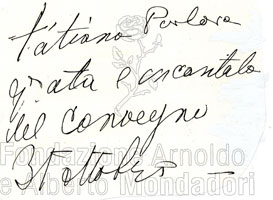 Tatiana Pavlova
grata e incantata
del convegno
31 ottobre
Fondazione Arnoldo
e Alberto Mondadori